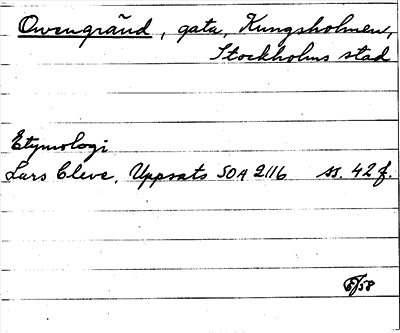 Owengränd, gata, Kungsholmen,
Stockholms stad
Etymologi
Lars Cleve, Uppsats SOA 2116 ss. 42 f.
/58